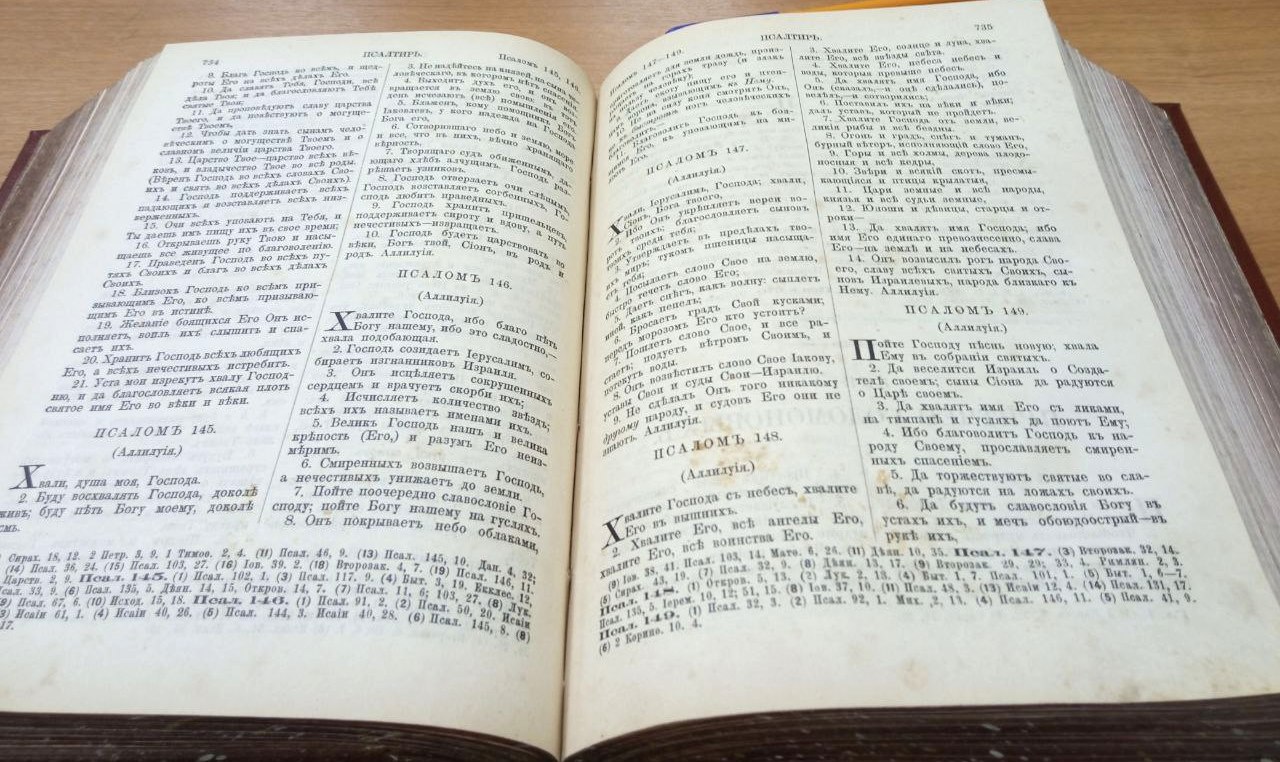 734
ПСАЛТИРЬ.
Псаломъ 145, 146.
9. Благъ Господь ко всѣмъ, и щед-
роты Его на всѣхъ дѣлахъ Его.
10. Да славятъ Тебя, Господи, всѣ
дѣла Твои, и да благословляютъ Тебя
святые Твои;
11. Да проповѣдуютъ славу царства
Твоего, и да повѣствуютъ о могуще-
ствѣ Твоемъ,
12. Чтобы дать знать сынамъ чело-
вѣческимъ о могуществѣ Твоемъ и о
славномъ величіи царства Твоего.
13. Царство Твое—царство всѣхъ вѣ-
ковъ, и владычество Твое во всѣ роды.
(Вѣренъ Господь во всѣхъ словахъ Сво-
ихъ и святъ во всѣхъ дѣлахъ Своихъ.)
14. Господь поддерживаетъ всѣхъ
падающихъ и возставляетъ всѣхъ низ-
верженныхъ.
15. Очи всѣхъ уповаютъ на Тебя, и
Ты даешь имъ пищу ихъ въ свое время;
16. Открываешь руку Твою и насы-
щаешь все живущее по благоволенію.
17. Праведенъ Господь во всѣхъ пу-
тяхъ Своихъ и благъ во всѣхъ дѣлахъ
Своихъ.
18. Близокъ Господь ко всѣмъ при-
зывающимъ Его, ко всѣмъ призываю-
щимъ Его въ истинѣ.
19. Желаніе боящихся Его Онъ ис-
полняетъ, вопль ихъ слышитъ и спа-
саетъ ихъ.
20. Хранитъ Господь всѣхъ любящихъ
Его, а всѣхъ нечестивыхъ истребитъ.
21. Уста мои изрекутъ хвалу Господ-
ню, и да благословляетъ всякая плоть
святое имя Его во вѣки и вѣки.
ПСАЛОМЪ 145.
(Аллилуія.)
Хвали, душа моя, Господа.
2. Буду восхвалять Господа, доколѣ
живъ; буду пѣть Богу моему, доколѣ
есмь.
3. Не надѣйтесь на князей, на сына че-
ловѣческаго, въ которомъ нѣтъ спасенія.
4. Выходитъ духъ его, и онъ воз-
вращается въ землю свою: въ тотъ
день исчезаютъ (всѣ) помышленія его.
5. Блаженъ, кому помощникъ Богъ
Іаковлевъ, у кого надежда на Господа
Бога его,
6. Сотворившаго небо и землю, море
и все, что въ нихъ, вѣчно хранящаго
вѣрность,
7. Творящаго судъ обиженнымъ, да-
ющаго хлѣбъ алчущимъ. Господь раз-
рѣшаетъ узниковъ,
8. Господь отверзаетъ очи слѣпымъ,
Господь возставляетъ согбенныхъ, Го-
сподь любитъ праведныхъ.
9. Господь хранитъ пришельцевъ,
поддерживаетъ сироту и вдову, а путь
нечестивыхъ—извращаетъ.
10. Господь будетъ царствовать во
вѣки, Богъ твой, Сіонъ, въ родъ и
родъ. Аллилуія.
ПСАЛОМЪ 146.
(Аллилуія.)
Хвалите Господа, ибо благо пѣть
Богу нашему, ибо это сладостно,—
хвала подобающая.
2. Господь созидаетъ Іерусалимъ, со-
бираетъ изгнанниковъ Израиля.
3. Онъ исцѣляетъ сокрушенныхъ
сердцемъ и врачуетъ скорби ихъ;
4. Исчисляетъ количество звѣздъ;
всѣхъ ихъ называетъ именами ихъ.
5. Великъ Господь нашъ и велика
крѣпость (Его,) и разумъ Его неиз-
мѣримъ.
6. Смиренныхъ возвышаетъ Господь,
а нечестивыхъ унижаетъ до земли.
7. Пойте поочередно славословіе Го-
споду; пойте Богу нашему на гусляхъ.
8. Онъ покрываетъ небо облаками,
Сирах. 18, 12. 2 Петр. 3, 9. 1 Тимоѳ. 2, 4. (11) Псал. 46, 9. (13) Псал. 145, 10. Дан. 4, 32;
(14) Псал. 36, 24. (15) Псал. 103, 27. (16) Іов. 39, 2. (18) Второзак. 4, 7. (19) Псал. 146, 11.
Царств. 2, 9. Псал. 145. (1) Псал. 102, 1. (3) Псал. 117. 9. (4) Быт. 3, 19. Екклес. 12,
Псал. 33, 9. (6) Псал. 135, 5. Дѣян. 14, 15. Откров. 14, 7. (7) Псал. 11, 6; 103, 27. (8) Лук.
(9) Псал. 67, 6. (10) Исход. 15, 18. Псал. 146. (1) Псал. 91, 2. (2) Псал. 50, 20. Исаіи
(3) Исаіи 61, 1. (4) Исаіи 40, 26. (5) Псал. 144, 3. Исаіи 40, 28. (6) Псал. 145, 8. (8)
17.
Псаломъ 147—149.
ПСАЛТИРЬ.
735
приготовляетъ для земли дождь, произ-
на горахъ траву (и злакъ
Его.
человѣческихъ
Господь въ боя-
уповающимъ на ми-
ПСАЛОМЪ 147.
(Аллилуія.)
Хвали, Іерусалимъ, Господа; хвали,
Сіонъ, Бога твоего,
2. Ибо Онъ укрѣпляетъ вереи во-
ротъ твоихъ, благословляетъ сыновъ
твоихъ среди тебя;
3. Утверждаетъ въ предѣлахъ тво-
ихъ миръ; тукомъ пшеницы насыща-
етъ тебя;
4. Посылаетъ слово Свое на землю,
быстро течетъ слово Его;
5. Даетъ снѣгъ, какъ волну: сыплетъ
иней, какъ пепелъ;
6. Бросаетъ градъ Свой кусками;
передъ морозомъ Его кто устоитъ?
7. Пошлетъ слово Свое, и все ра-
стаетъ; подуетъ вѣтромъ Своимъ, и
потекутъ воды.
8. Онъ возвѣстилъ слово Свое Іакову,
уставы Свои и суды Свои—Израилю.
9. Не сдѣлалъ Онъ того никакому
другому народу, и судовъ Его они не
знаютъ. Аллилуія.
ПСАЛОМЪ 148.
(Аллилуія.)
Хвалите Господа съ небесъ, хвалите
Его въ вышнихъ.
2. Хвалите Его, всѣ ангелы Его,
хвалите Его, всѣ воинства Его.
3. Хвалите Его, солнце и луна, хва-
лите Его, всѣ звѣзды свѣта.
4. Хвалите Его, небеса небесъ и
воды, которыя превыше небесъ.
5. Да хвалятъ имя Господа, ибо
Онъ (сказалъ,—и они сдѣлались,) по-
велѣлъ,—и сотворились;
6. Поставилъ ихъ на вѣки и вѣки;
далъ уставъ, который не прейдетъ.
7. Хвалите Господа отъ земли, ве-
ликія рыбы и всѣ бездны,
8. Огонь и градъ, снѣгъ и туманъ,
бурный вѣтеръ, исполняющій слово Его,
9. Горы и всѣ холмы, дерева плодо-
носныя и всѣ кедры,
10. Звѣри и всякій скотъ, пресмы-
кающіяся и птицы крылатыя,
11. Цари земные и всѣ народы,
князья и всѣ судьи земные,
12. Юноши и дѣвицы, старцы и от-
роки—
13. Да хвалятъ имя Господа; ибо
имя Его единаго превознесенно, слава
Его—на землѣ и на небесахъ.
14. Онъ возвысилъ рогъ народа Сво-
его, славу всѣхъ святыхъ Своихъ, сы-
новъ Израилевыхъ, народа близкаго къ
Нему. Аллилуія.
ПСАЛОМЪ 149.
(Аллилуія.)
Пойте Господу пѣснь новую; хвала
Ему въ собраніи святыхъ.
2. Да веселится Израиль о Созда-
телѣ своемъ; сыны Сіона да радуются
о Царѣ своемъ.
3. Да хвалятъ имя Его съ ликами,
на тимпанѣ и гусляхъ да поютъ Ему;
4. Ибо благоволитъ Господь къ на-
роду Своему, прославляетъ смирен-
ныхъ спасеніемъ.
5. Да торжествуютъ святые во сла-
вѣ, да радуются на ложахъ своихъ.
6. Да будутъ славословія Богу въ
устахъ ихъ, и мечъ обоюдоострый—въ
рукѣ ихъ,
(9) Іов. 38, 41. Псал. 103, 14. Матѳ. 6, 26. (11) Дѣян. 10, 35. Псал. 147. (3) Второзак. 32, 14.
(5) Сирах. 43, 19. (7) Псал. 32, 9. (8) Дѣян. 13, 17. (9) Второзак. 29, 29; 33, 4. Римлян. 2, 3.
Псал. 148. (1) Откров. 5, 13. (2) Лук. 2, 13. (4) Быт. 1, 7. Псал. 101, 1. (5) Быт. 1, 6—7.
Псал. 135, 5. Іерем. 10, 12; 51, 15. (8) Іов. 37, 10. (11) Псал. 48, 3. (13) Исаіи 12, 4. (14) Псал. 131, 17.
Псал. 149. (1) Псал. 32, 3. (2) Псал. 92, 1. Мих. 2, 13. (4) Псал. 146, 11. (5) Псал. 41, 9.
(6) 2 Коринѳ. 10, 4.